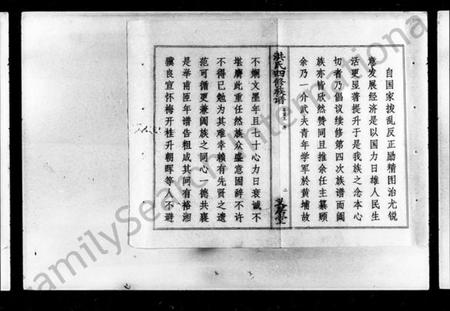 自國家撥亂反正勵精圖治尤銳
意發展經濟是以國力日雄人民生
活更顯著提升于是我族之念本心
切者乃倡议續修第四次族谱而阖
族亦皆欣然赞同且推余任主纂顾
余乃一介武夫青年学军於黄埔故
洪氏四修族谱
不娴文墨年且七十心力日衰诚不
堪膺此重任然族众盛意固辭不许
不得已勉为其难幸赖有先贤之遗
范可循更兼阖族之同心一德共襄
是举甫匝年谱告粗成其间有裕湘
骥良宣怀梅开桂升朝晖等人不避
FamilySearch International